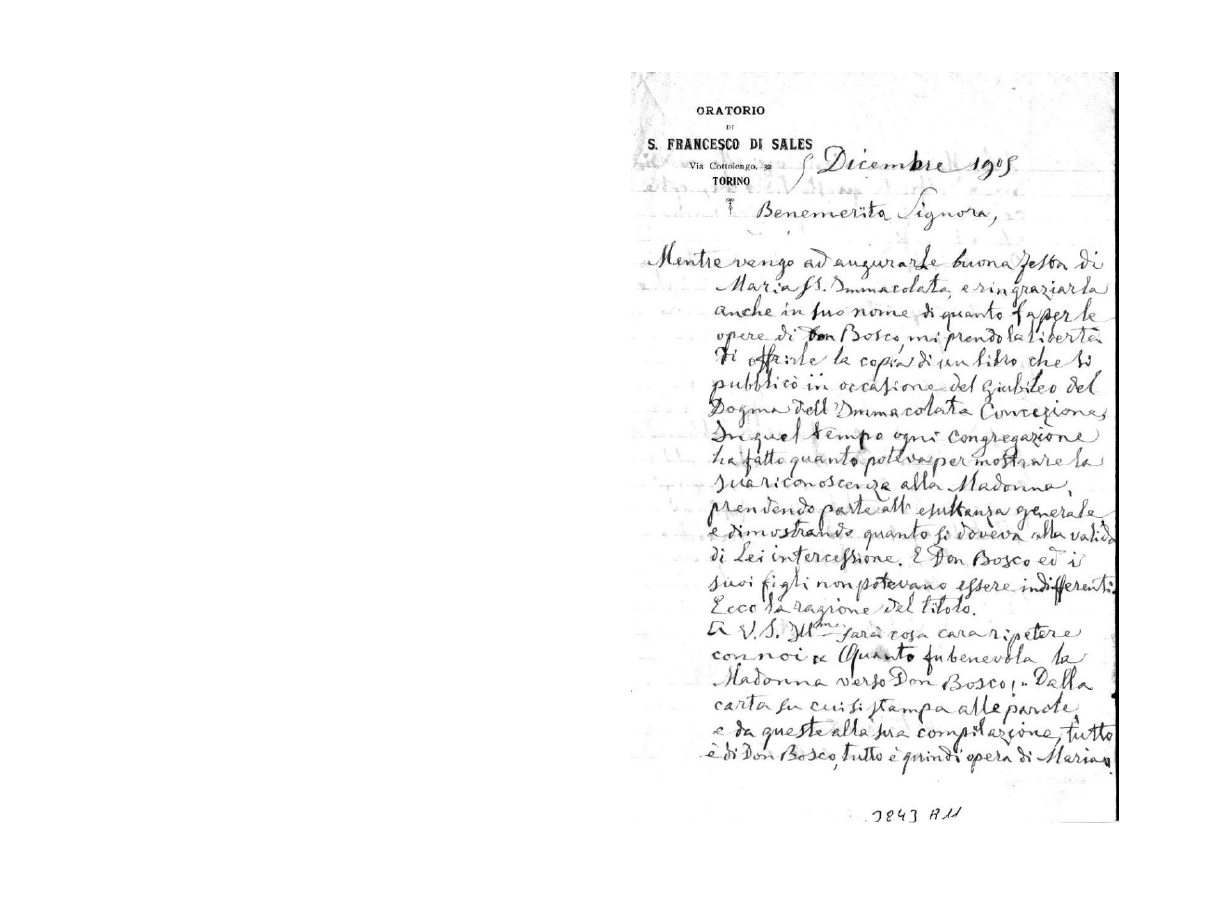 ORATORIO
DI
S. FRANCESCO DI SALES
Via Cottolengo, 32
TORINO
5 Dicembre 1905
Benemerita Signora,
Mentre vengo ad augurarLe buona festa di
Maria SS. Immacolata, e ringraziarla
anche in suo nome di quanto fa per le
opere di Don Bosco, mi prendo la libertà
di offrirle la copia di un libro che si
pubblicò in occasione del Giubileo del
Dogma dell'Immacolata Concezione,
In quel tempo ogni congregazione
ha fatto quanto poteva per mostrare la
sua riconoscenza alla Madonna,
prendendo parte all'esultanza generale
e dimostrando quanto si doveva alla valida
di Lei intercessione. E Don Bosco ed i
suoi figli non potevano essere indifferenti.
Ecco la ragione del titolo.
A V. S. Ill.ma sarà cosa cara ripetere
con noi « Quanto fu benevola la
Madonna verso Don Bosco! » Dalla
carta su cui si stampa alle parole,
e da queste alla sua compilazione, tutto
è di Don Bosco, tutto è quindi opera di Maria.
3843 A11